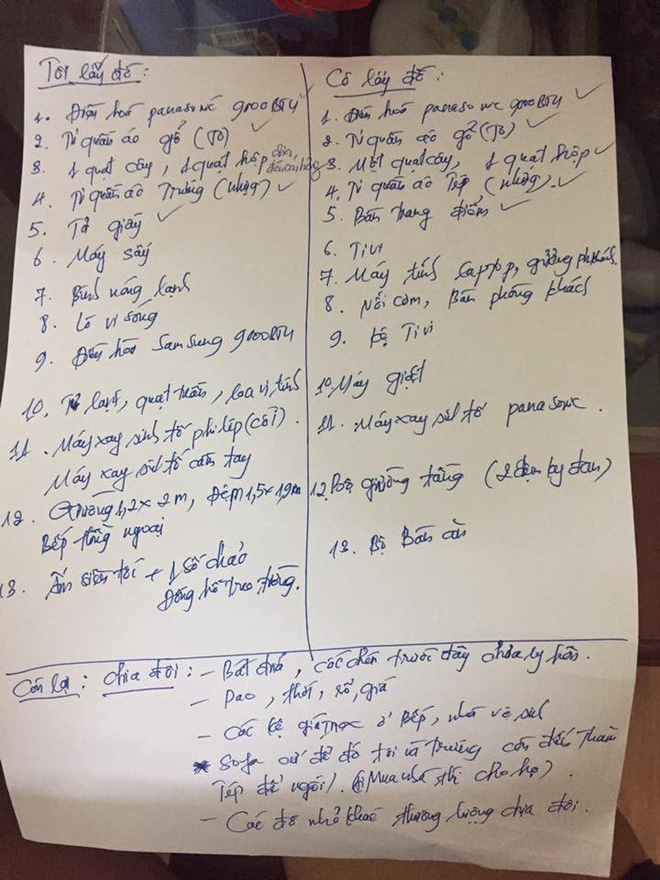 Tôi lấy đồ :
1. Điều hoà panasonic 9000BTU
2. Tủ quần áo gỗ (To)
3. 1 quạt cây, 1 quạt hộp
4. Tủ quần áo Trường (nhựa)
5. Tủ giày
6. Máy sấy
7. Bình nóng lạnh
8. Lò vi sóng
9. Điều hoà Samsung 9000BTU
10. Tủ lạnh, quạt trần, loa vi tính
11. Máy xay sinh tố philip (cối).
Máy xay sinh tố cầm tay
12. Giường 1,2 x 2 m, Đệm 1,5 x 1,9m
Bếp hồng ngoại
13. Ấm siêu tốc + 1 số chảo
Đồng hồ treo tường.
Cô lấy đồ :
1. Điều hoà panasonic 9000BTU
2. Tủ quần áo gỗ (To)
3. Một quạt cây, 1 quạt hộp
4. Tủ quần áo Tép (nhựa).
5. Bàn trang điểm
6. Tivi
7. Máy tính laptop, giường ph khách.
8. Nồi cơm, Bàn phòng khách
9. Kệ Tivi
10. Máy giặt
11. Máy xay sinh tố panasonic.
12. Bộ giường tầng (2 đệm
13. Bộ Bàn ăn
Còn lại : chia đôi : - Bát đũa, cốc chén trước đây chưa ly hôn.
- Dao, thớt, rổ, giá
- Các kệ giá inox ở Bếp, nhà vệ sinh
* Sofa cứ để đó tôi và Trường còn đến thăm
Tép để ngồi. (Mua nhà thì cho họ).
- Các đồ nhỏ khác thương lượng chia đôi.